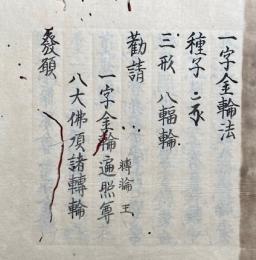 一字金輪法
種子
三形 八輻輪
勸請
一字金輪遍照尊
轉論王
八大佛頂諸轉輪
發願